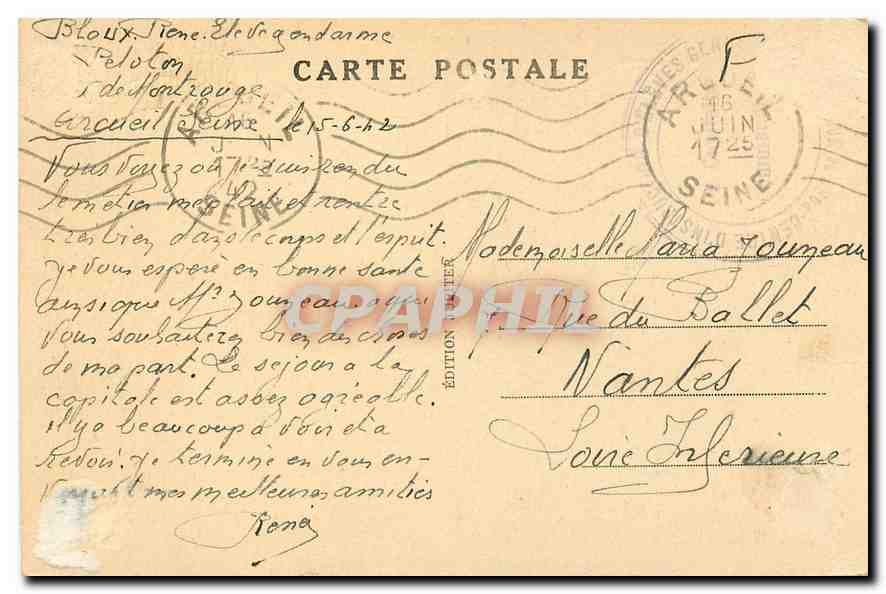 Bloux René. Elève gendarme
Peloton
de Montrouge
Arcueil Seine le 15-6-42
CARTE POSTALE
F
ARCUEIL
16
JUIN
17 25
SEINE
ARCUEIL
SEINE
Vous voyez où je suis rendu
le métier me plait et rentre
très bien dans le corps et l'esprit.
Je vous espère en bonne santé
ainsi que Mr Jouneau. à qui
vous souhaiterez bien des choses
de ma part. Le séjour à la
capitale est assez agréable.
il y a beaucoup à voir et à
revoir. Je termine en vous en-
voyant mes meilleures amitiés
René
EDITION
CPAPHIL
Mademoiselle Maria Jouneau
Rue du Ballet
Nantes
Loire Inferieure